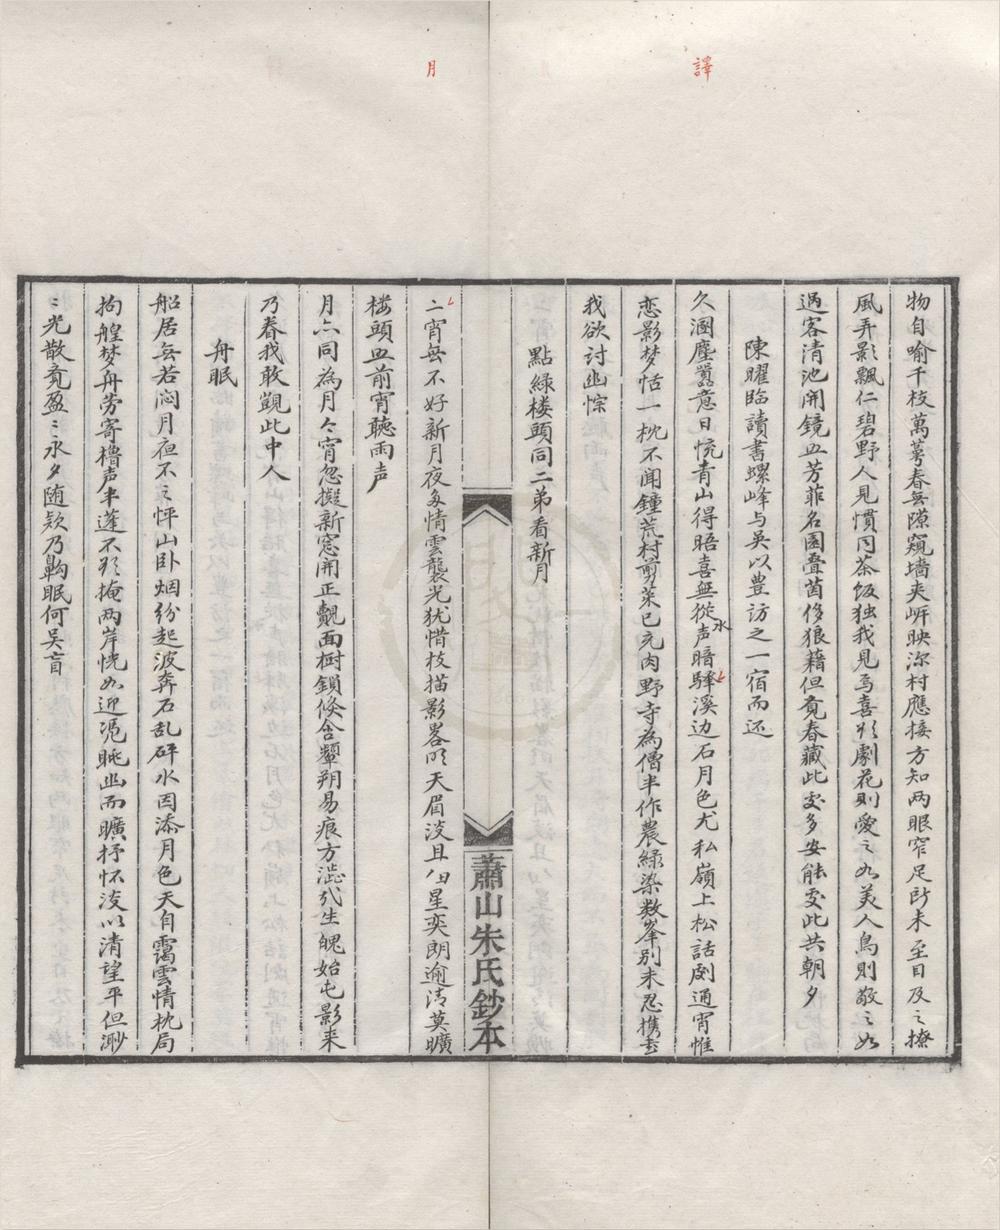 譯
物自喻千枝萬萼春無隙窺墻夾岍映深村應接方知两眼窄足所未至目及之撩
風弄影飄仁碧野人見慣同茶飯独我見焉喜欲劇花則愛之如美人鳥則敬之如
遇客清池開鏡照芳菲名園叠茵侈狼藉但覔春藏此处多安能处此共朝夕
陳曜臨讀書螺峰与吳以豊訪之一宿而还
久溷塵嚣意日恍青山得晤喜無從水声暗驛溪边石月色尤私嶺上松話剧通宵惟
恋影梦恬一枕不闻鐘荒村剪菜已充肉野寺為僧半作農綠染数峯別未忍携尊
我欲討幽悰
點綠楼頭同二弟看新月
月
二宵無不好新月夜多情雲襲光犹惜枝描影畧明天眉淡且八日星奕朗逾清莫曠
楼頭照前宵聽雨声
月六同為月今宵忽擬新窓開正覿面樹鎖倏含顰朔易痕方澁代生魄始屯影来
乃眷我敢觀此中人
舟眠
船居無若闷月夜不之怦山卧烟纷起波奔石乱砰水因添月色天自靄雲情枕局
拘艎梦舟劳寄橹声半蓬不欲掩两岸恍如迎凭眺幽而曠抒怀淡以清望平但渺
〻光散竟盈〻永夕随欵乃齁眠何吴盲
蕭山朱氏鈔本